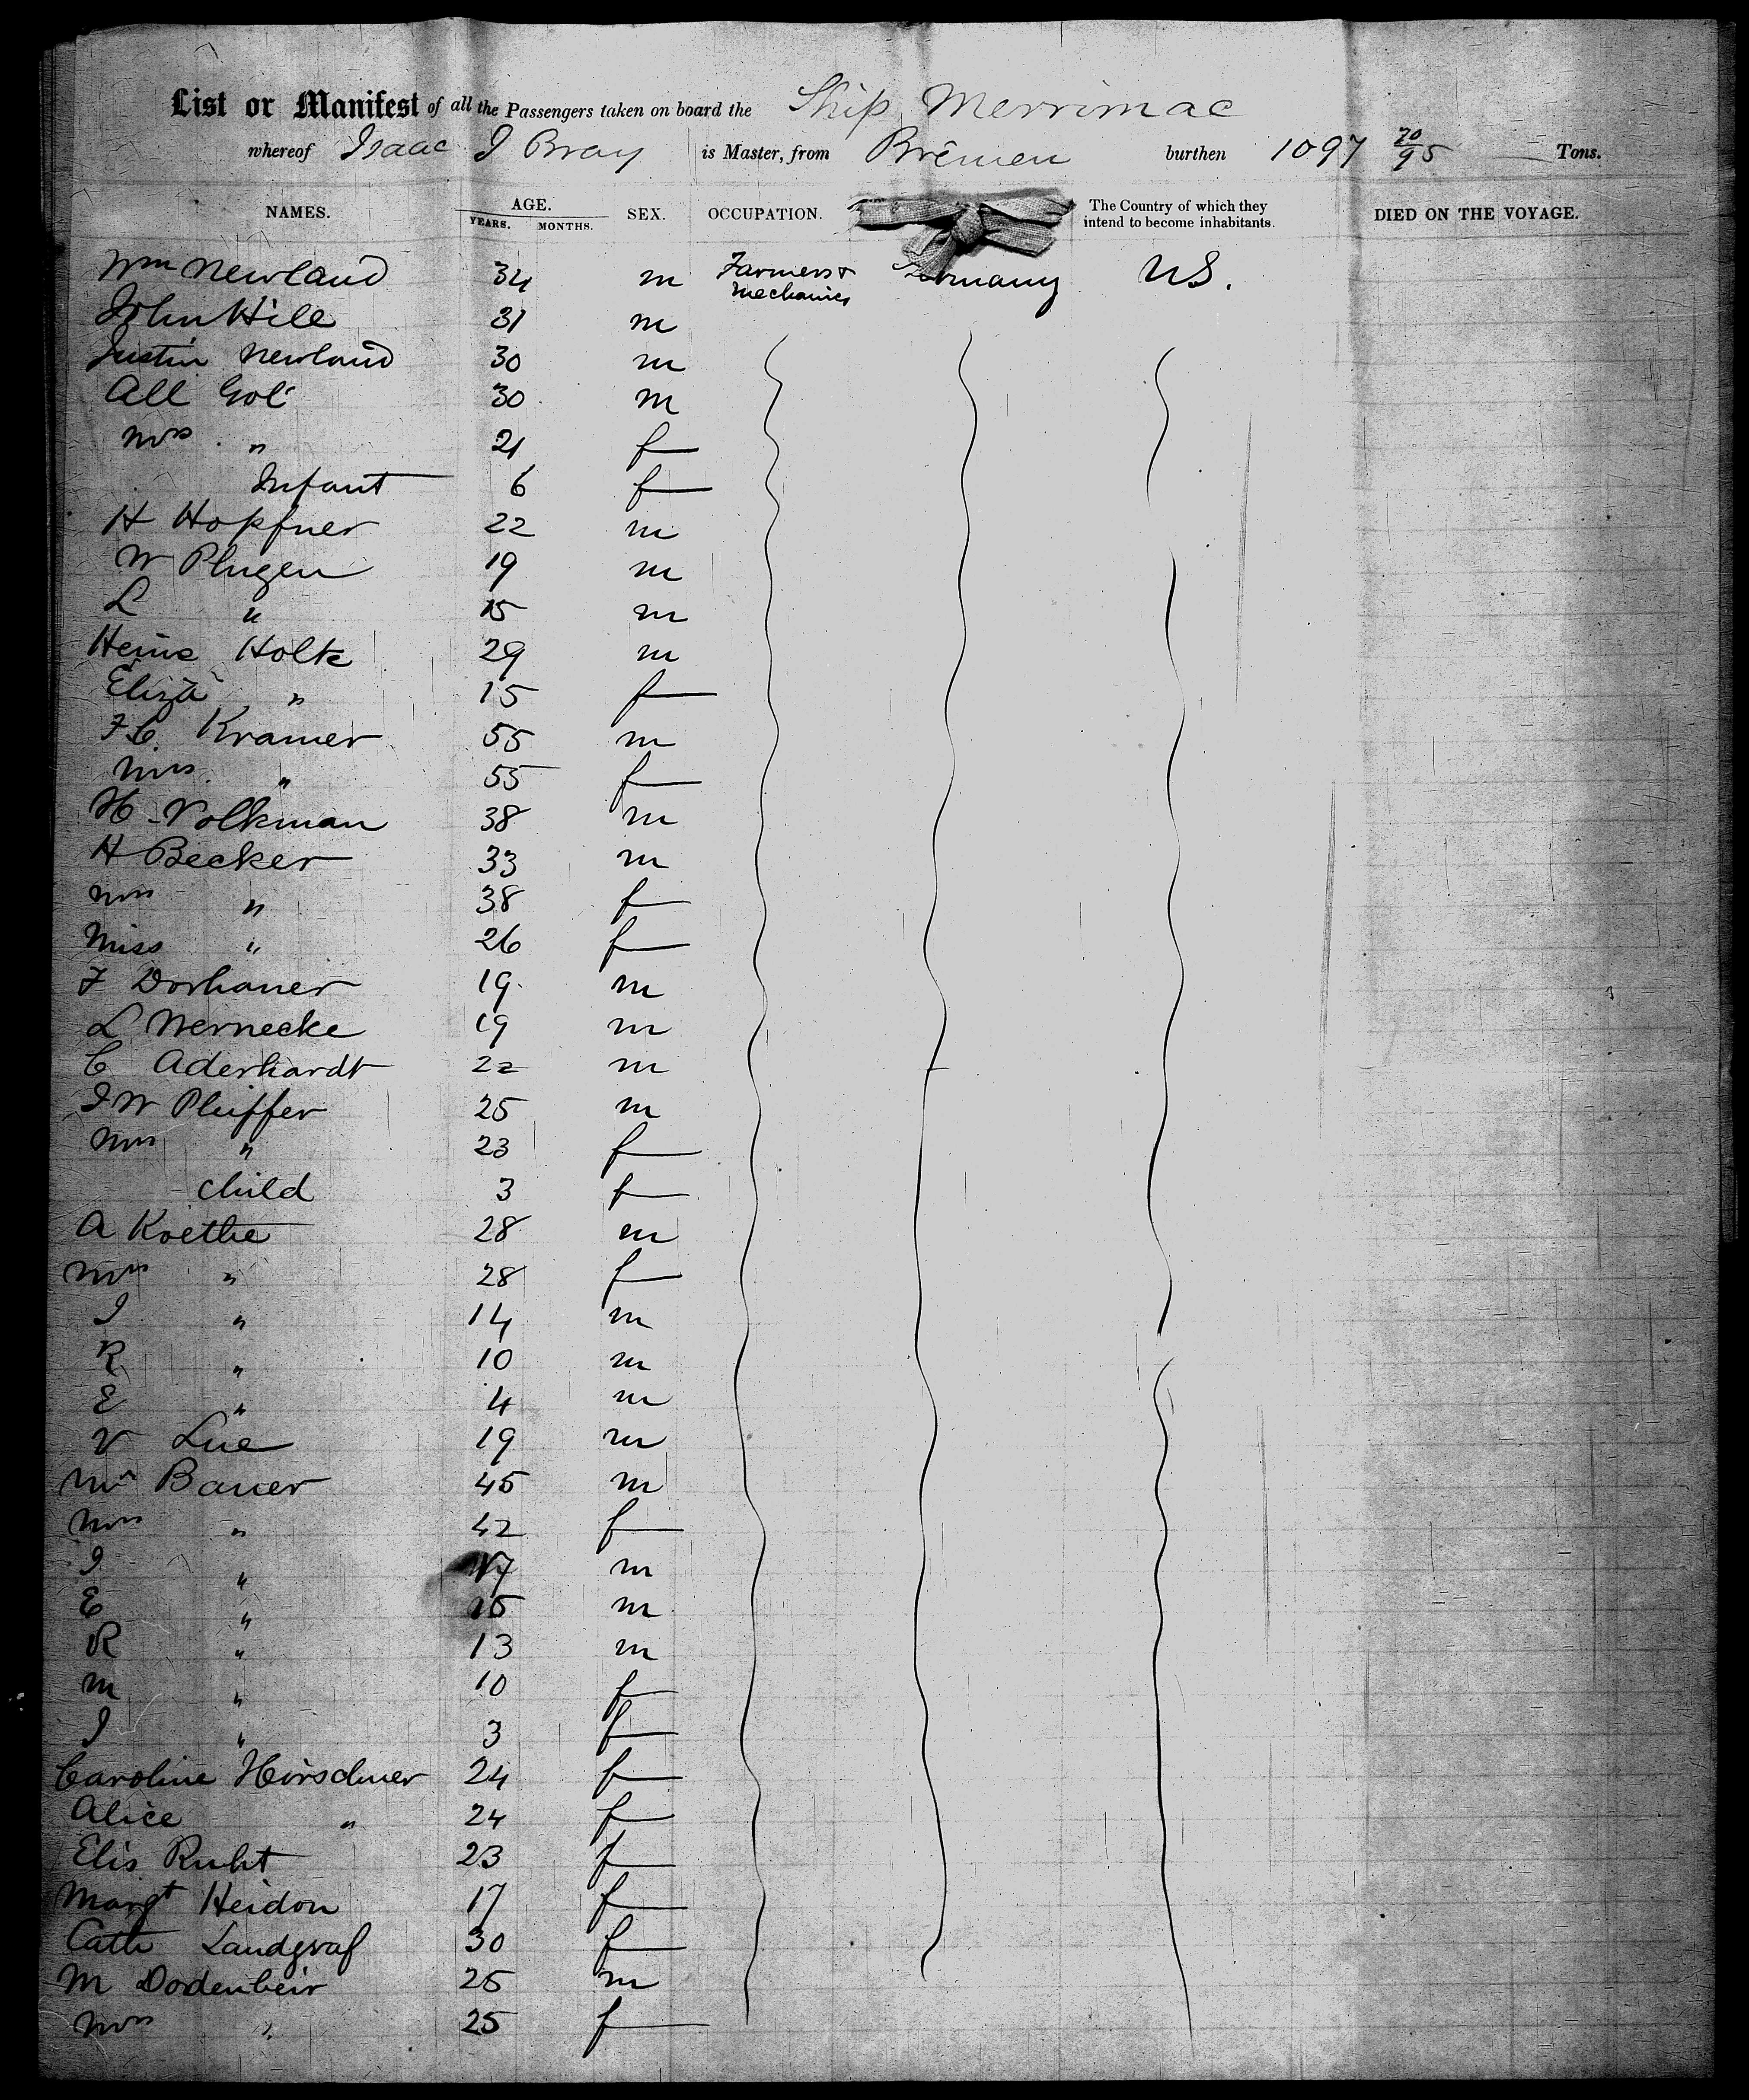 List or Manifest of all the Passengers taken on board the Ship Merrimac
whereof Isaac I Bray is Master, from Bremen burthen 1097 70/95 Tons.
NAMES. AGE. YEARS. MONTHS. SEX. OCCUPATION. The Country of which they intend to become inhabitants. DIED ON THE VOYAGE.
Wm Newland 34 m Farmers & Mechanics Germany US.
John Hile 31 m
Justin Newland 30 m
All Gol 30 m
Mrs " 21 f
Infant 6 f
H Hopfner 22 m
W Plugen 19 m
L " 15 m
Heins Holte 29 m
Eliza " 15 f
F C. Kramer 55 m
Mrs. " 55 f
H Volkman 38 m
H Becker 33 m
Mrs " 38 f
Miss " 26 f
F Dorhauer 19 m
L Wernecke 19 m
C Aderhardt 22 m
I W Pluffer 25 m
Mrs " 23 f
child 3 f
A Koethe 28 m
Mrs " 28 f
I " 14 m
R " 10 m
E " 4 m
V Lue 19 m
Mr Bauer 45 m
Mrs " 42 f
I " 17 m
E " 15 m
R " 13 m
M " 10 f
I " 3 f
Caroline Hirschner 24 f
Alice " 24 f
Elis Ruht 23 f
Margt Heidon 17 f
Cath Landgraf 30 f
M Dordenbeir 25 m
Mrs " 25 f